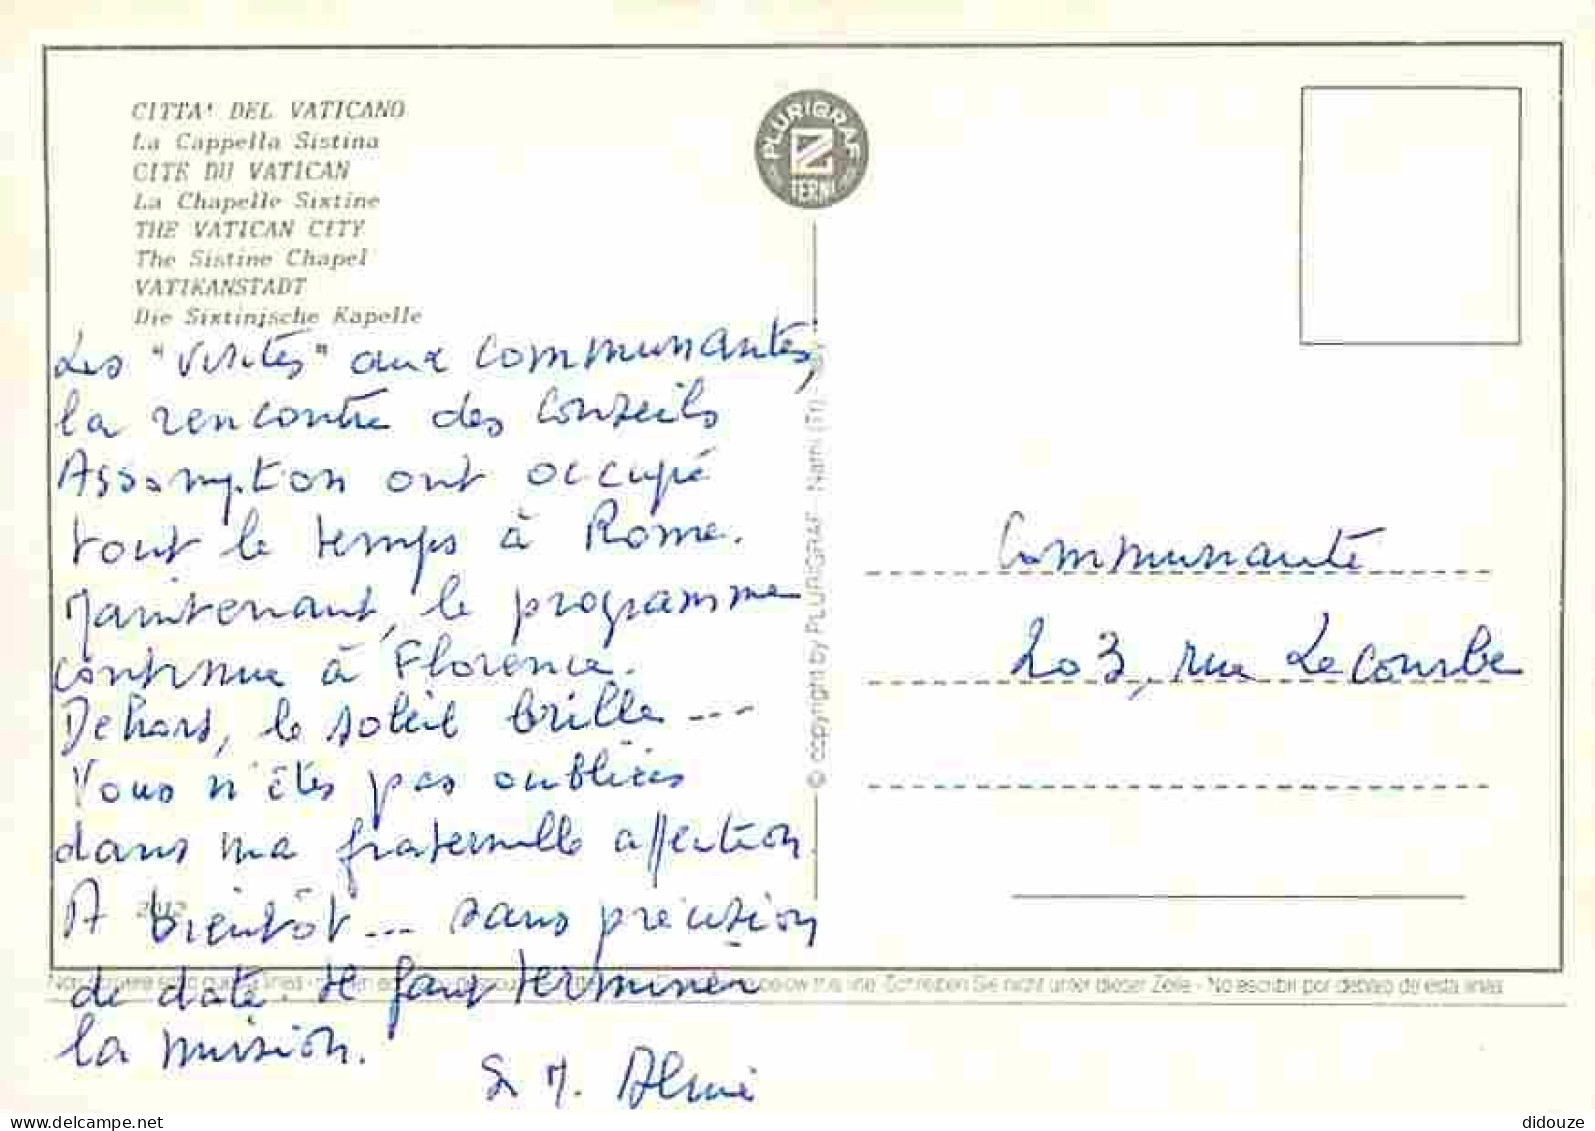 CITTA' DEL VATICANO
La Cappella Sistina
CITE DU VATICAN
La Chapelle Sixtine
THE VATICAN CITY
The Sistine Chapel
VATIKANSTADT
Die Sixtinjsche Kapelle
PLURIGRAF
TERNI
Les "visites" aux communautés,
la rencontre des Conseils
Assomption ont occupé
tout le temps à Rome.
Maintenant, le programme
continue à Florence.
Dehors, le soleil brille ---
Vous n'êtes pas oubliées
dans ma fraternelle affection.
A bientôt --- sans précision
de date. Il faut terminer
la mission.
Sr M. Almé
© copyright by PLURIGRAF - Narni (Tr) -
Communauté
203, rue Lecourbe
below this line. Schreiben Sie nicht unter dieser Zeile - No escribir por debajo de esta linea
didouze